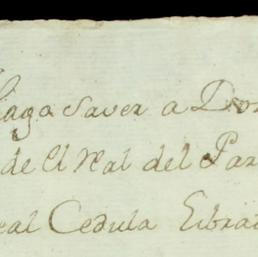 Haga saver a Don
de el Ral del Par
eal Cedula Librad